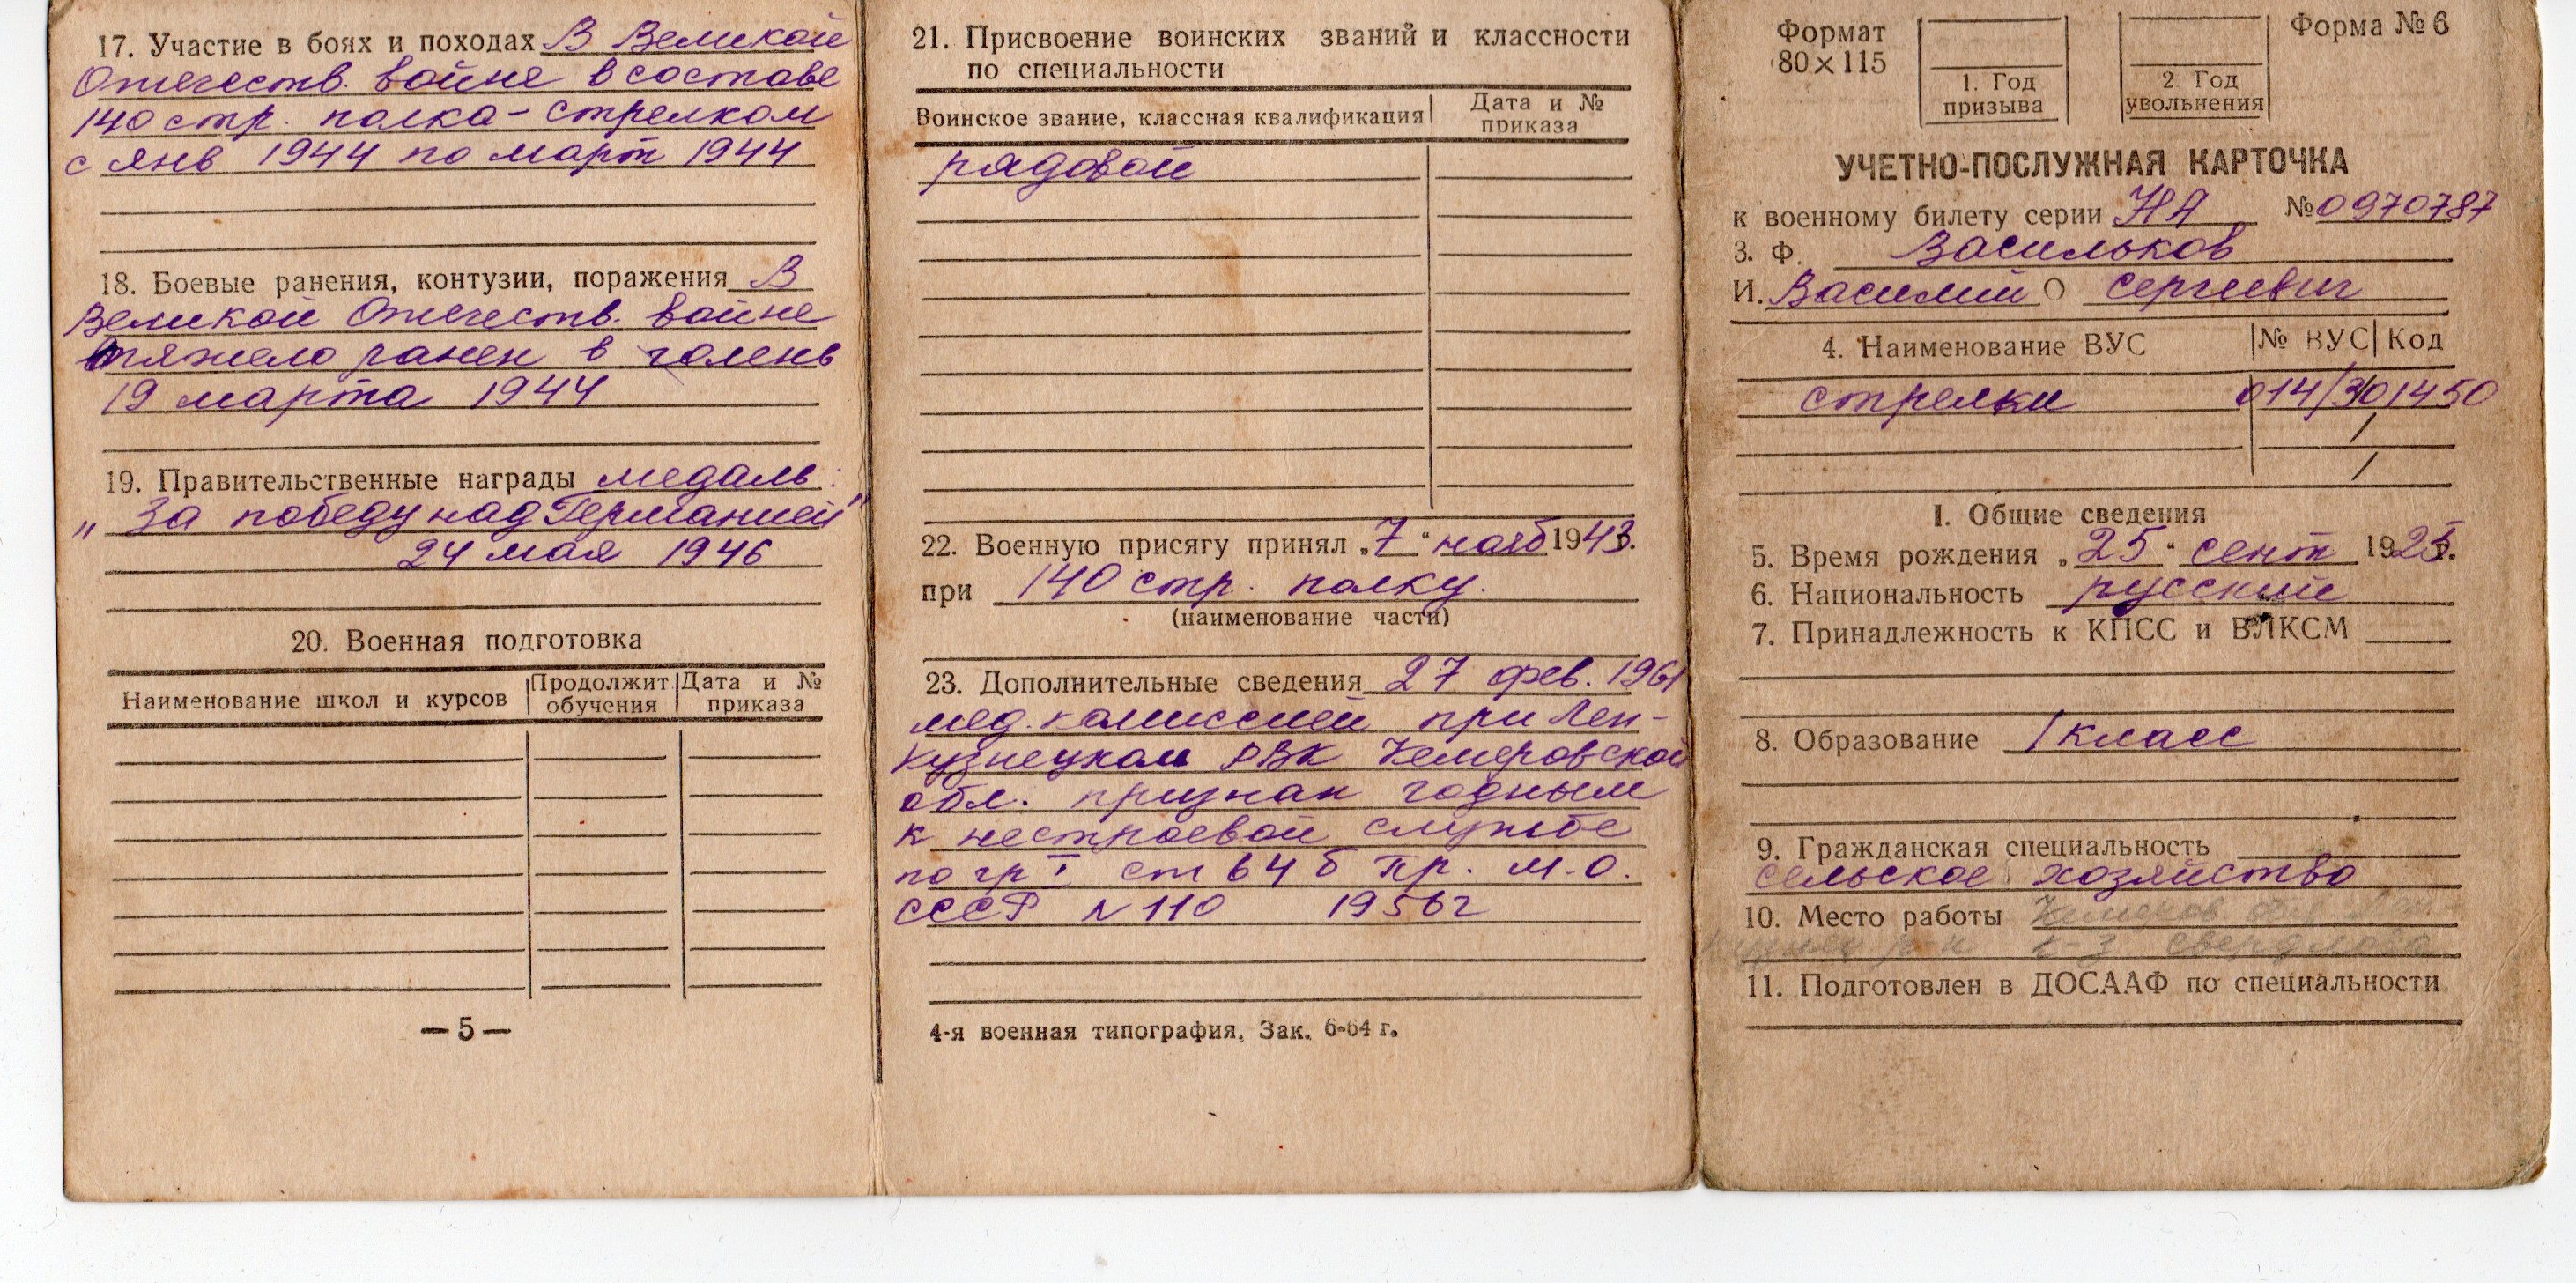 17. Участие в боях и походах В Великой
Отечеств. войне в составе
140 стр. полка - стрелком
с янв 1944 по март 1944
18. Боевые ранения, контузии, поражения В
Великой Отечеств. войне
тяжело ранен в голень
19 марта 1944
19. Правительственные награды медаль:
„За победу над Германией"
24 мая 1946
20. Военная подготовка
Наименование школ и курсов
Продолжит. обучения
Дата и № приказа
— 5 —
21. Присвоение воинских званий и классности
по специальности
Воинское звание, классная квалификация
Дата и № приказа
рядовой
22. Военную присягу принял „7" нояб 1943.
при 140 стр. полку.
(наименование части)
23. Дополнительные сведения 27 фев. 1961
мед. комиссией при Лен-
Кузнецком РВК Кемеровской
обл. признан годным
к нестроевой службе
по гр I ст 64 б Пр. М.О.
СССР № 110 1956г
4-я военная типография. Зак. 6-64 г.
Формат
80×115
1. Год
призыва
2. Год
увольнения
Форма № 6
УЧЕТНО-ПОСЛУЖНАЯ КАРТОЧКА
к военному билету серии НА № 0970787
3. Ф. Васильков
И. Василий О Сергеевич
4. Наименование ВУС № ВУС Код
стрелки 014/3/01450
I. Общие сведения
5. Время рождения „25" сент 1925.
6. Национальность русский
7. Принадлежность к КПСС и ВЛКСМ
8. Образование 1 класс
9. Гражданская специальность
сельское хозяйство
10. Место работы Кемеров. обл Лен-
р-н к-з Свердлова
11. Подготовлен в ДОСААФ по специальности